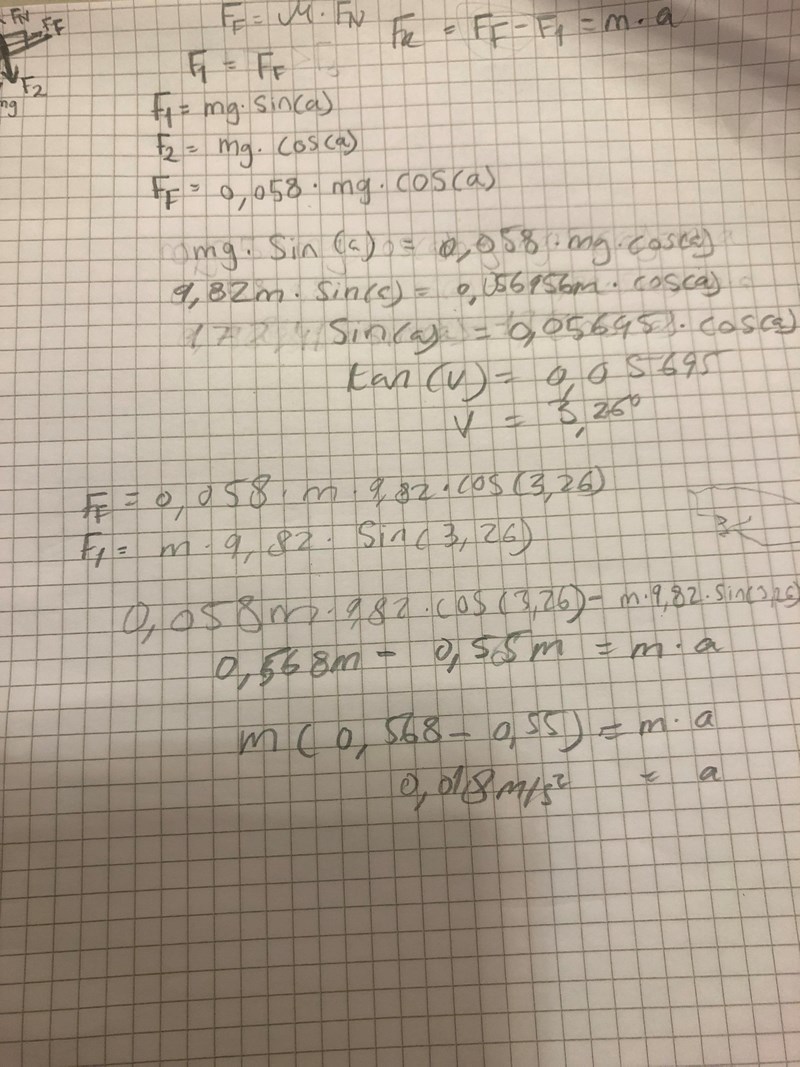 FN
FF
F2
mg
FF = μ · FN
FR = FF - F1 = m · a
F1 = FF
F1 = mg · sin(a)
F2 = mg · cos(a)
FF = 0,058 · mg · cos(a)
mg · sin(a) = 0,058 · mg · cos(a)
9,82m · sin(a) = 0,056956m · cos(a)
sin(a) = 0,05695 · cos(a)
tan(v) = 0,05695
v = 3,26°
FF = 0,058 · m · 9,82 · cos(3,26)
F1 = m · 9,82 · sin(3,26)
0,058m · 9,82 · cos(3,26) - m · 9,82 · sin(3,26)
0,568m - 0,55m = m · a
m(0,568 - 0,55) = m · a
0,018 m/s² = a